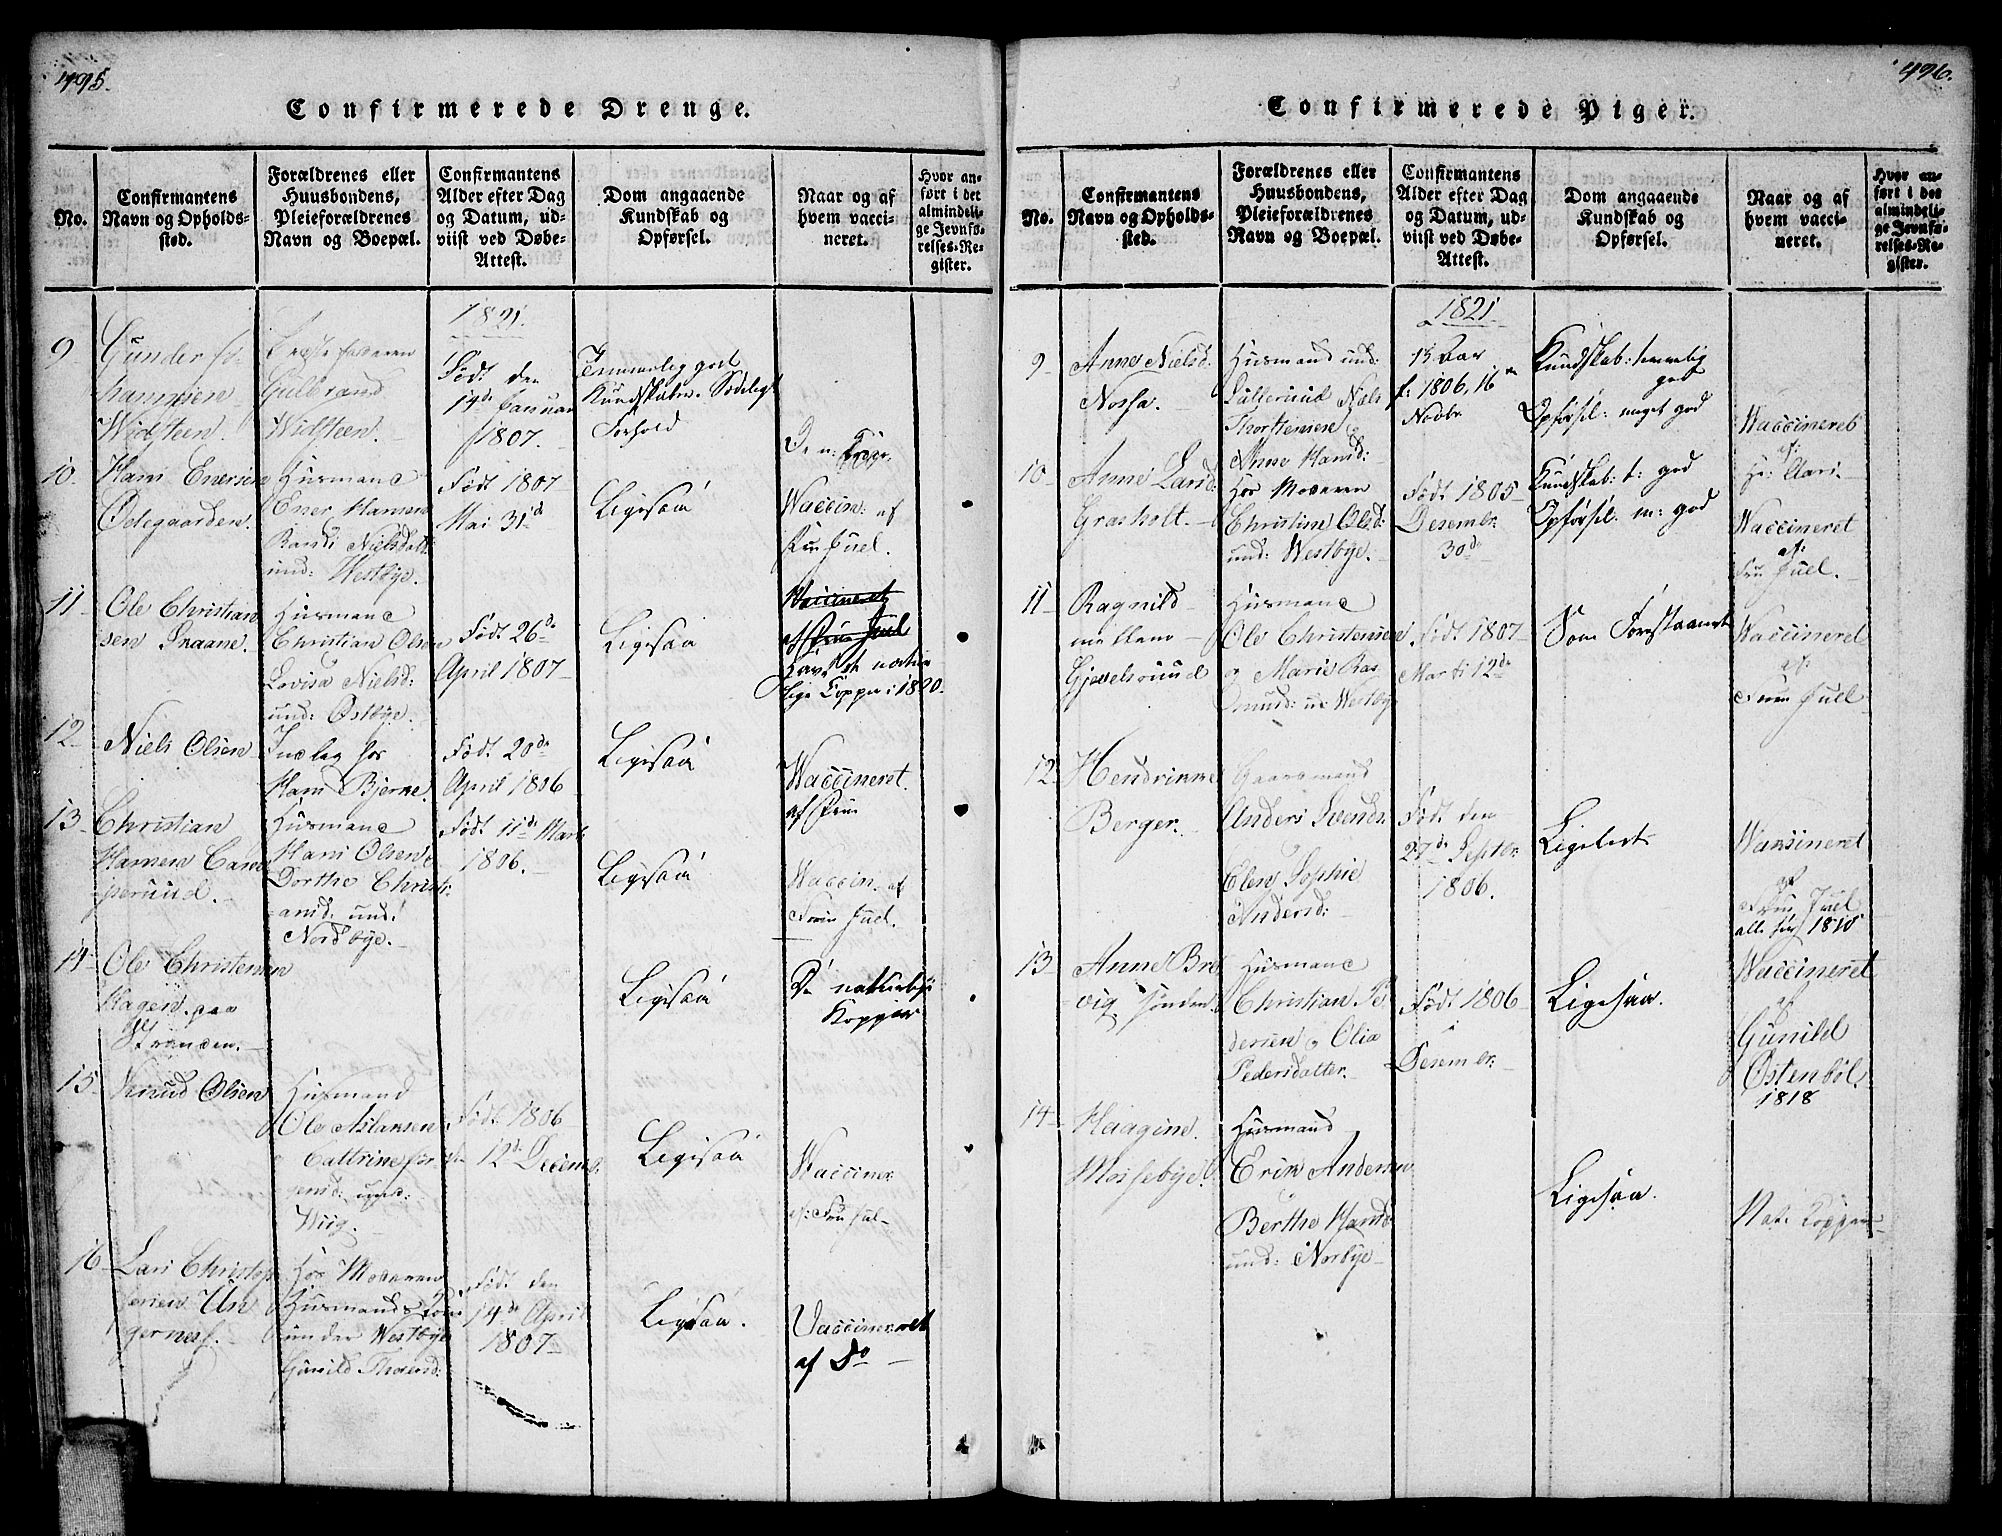 495.
Confirmerede Drenge.
No.
Confirmantens
Navn og Opholds-
sted.
Forældrenes eller
Huusbondens,
Pleieforældrenes
Navn og Boepæl.
Confirmantens
Alder efter Dag
og Datum, ud-
viist ved Døbe-
Attest.
Dom angaaende
Kundskab og
Opførsel.
Naar og af
hvem vacci-
neret.
Hvor an-
ført i det
almindeli-
ge Jevnfø-
relses-Re-
gister.
1821.
9
Gunder Jo-
hannesen
Widsteen.
Gulbrand
Widsteen.
Født den
14de Januar
1807.
Temmelig god
Kundskaber. Sædeligt
Forhold
10.
Hans Enersen
Ødegaarden.
Husmand
Ener Hansen
Randi Nielsdatt
und: Westbye.
Født 1807
Mai 31d
Ligesaa
Waccin: af
Fru Juel.
11
Ole Christian
sen Snaane.
Husmand
Christian Olsen
Lovisa Nielsd:
und: Østbye.
Født 26de
April 1807
Ligesaa
Waccineret
af Fru Juel
havt de natur
lige Copper i 1820
12
Niels Olsen
Inderst hos
Hans Bjerke.
Født 20de
April 1806
Ligesaa
Waccineret
af Fru
13
Christian
Hansen Cam
perud.
Husmand
Hans Olsen
Dorthe Christi
ansd. und:
Nordbye.
Født 11de Marts
1806.
Ligesaa
Waccin. af
Frue Juel.
14
Ole Christensen
Hagen paa
Stranden.
Ligesaa
De naturlige
Kopper
15
Knud Olsen
Husmand
Ole Aslaksen
Cattrine Jør
gensd: und:
Wiig.
Født 1806
12de Decemb.
Ligesaa
Waccineret
af: Fru Jul
16
Lars Christop
hersen Un
gernes.
Hos Moderen
Husmands Kone
under Westbye
Gunild Thoresd:
Født den
14de April
1807
Ligesaa.
Vaccineret
af Do
496.
Confirmerede Piger.
No.
Confirmantens
Navn og Opholds-
sted.
Forældrenes eller
Huusbondens,
Pleieforældrenes
Navn og Boepæl.
Confirmantens
Alder efter Dag
og Datum, ud-
viist ved Døbe-
Attest.
Dom angaaende
Kundskab og
Opførsel.
Naar og af
hvem vacci-
neret.
Hvor an-
ført i det
almindeli-
ge Jevnfø-
relses-Re-
gister.
1821
9
Anne Nielsd.
Nossa.
Husmand und:
Niels
Thorstensen
Anne Hansd:
15 Aar
f: 1806, 16
Novbr
Kundskab: temmelig
god
Opførsel: meget god
Waccineret
af
10
Anne Larsd:
Grasholt.
Hos Moderen
Christine Olsd:
und: Westbye.
Født 1805
Desembr.
30de
Kundskab: t: god
Opførsel: m: god
Waccineret
af:
Fru Juel.
11
Ragnild
mellem
Gjevelsruud
Husmand
Ole Christensen
og Marie Ras
musd: u: Westby
Født 1807
Marti 12de
Som Forestaaende
Waccineret
af:
Frue Juel
12
Hendrikke
Berger.
Gaardmand
Anders Svends.
Elen Sophie
Andersd:
Født den
27de Septbr.
1806.
Ligeledes
Waksineret
af
Frue Juel
1810
13
Anne Bre
vig Sønden
Husmand
Christian Pe
dersen og Olia
Pedersdatter.
Født 1806
i
Desembr.
Ligesaa.
Waccineret
af
Gunild
Østenbøl.
1818
14
Haagine
Mossebye.
Husmand
Erik Andersen
og
Berthe Hansd
und: Norbye
Ligesaa.
Nat: Kopper